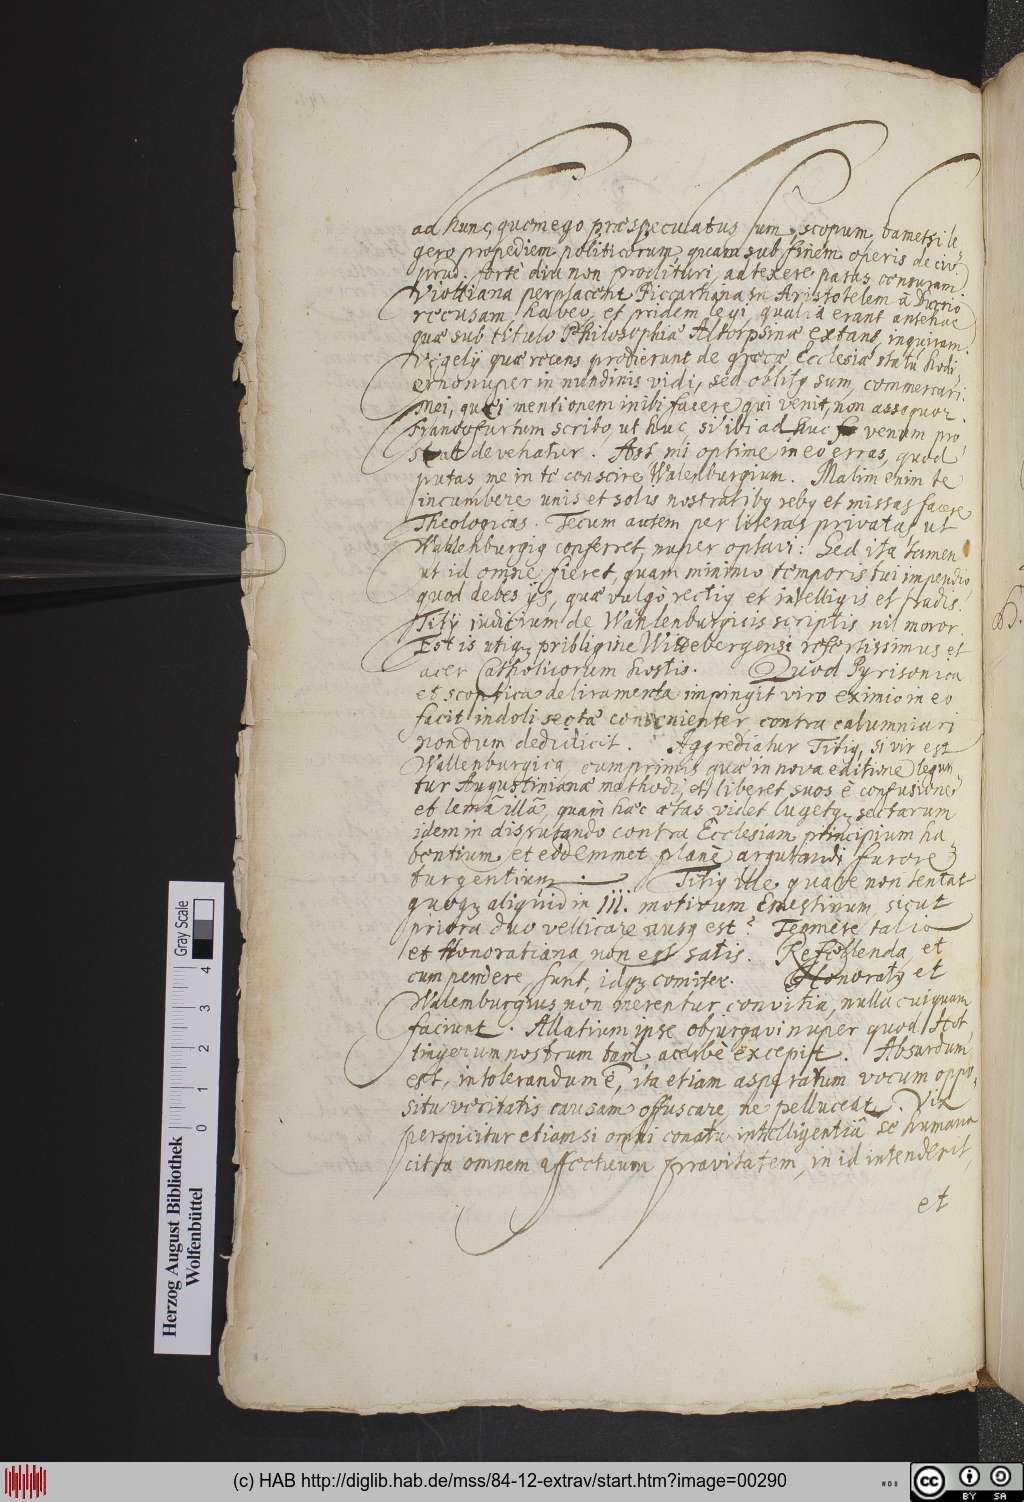 ad hunc, quem ego præspeculatus sum, scopum, tametsi le
gero propediem politicorum, quam sub finem operis de civ.
prud. forte diu non prodituri, adtexere paras, censuram.
Viottiana perplacent. Piccartiana in Aristotelem à Durrio
recusam habeo, et pridem legi, qualia erant antehac
quæ sub titulo Philosophiæ Altorphinæ extant, inquiram.
Vegelij quæ recens prodierunt de græcæ Ecclesiæ statu hodi
erno nuper in nundinis vidi, sed oblitq sum, commercari.
Mei, quei mentionem inibi facere qui venit, non assequor
Francofurtum scribo, ut huc, si ibi ad huc venum pro
stat devehatur. Ast mi optime in eo erras, quod
putas me in te conscire Walenburgium. Malim enim te
incumbere unis et solis nostratibq rebq et missas facere
Theologicas. Tecum autem per literas privatas ut
Wahlenburgiq conferret, nuper optavi: Sed ita tamen
ut id omne fieret, quam minimo temporis tui impendio
quod debes ijs, quæ vulgò rectiq et intelligis et tradis.
Titij iudicium de Wahlenburgicis scriptis nil moror
Est is utiqz pribligine Wittebergensi refertissimus et
acer Catholicorum hostis. Quod Pyrisonica
et scoptica deliramenta impingit viro eximio in eo
facit indoli sectæ convenienter contra calumniari
nondum dedidicit. Aggrediatur Titiq, si vir est
Wallenburgica, cumprimis quæ in nova editione legun
tur Augustinianæ methodi, et liberet suos è confusione
et lemâ illâ, quam hæc ætas videt lugetqz sectarum
idem in disputando contra Ecclesiam principium ha
bentium et eodemmet planè argutandi furore
turgentium. Titiq ille quare non tentat
quoqz aliquid in III. motivum Ernestinum sicut
priora duo vellicare ausq est? Temere talio
et Honoratiana non est satis. Refellenda, et
cum pendere, sunt, idqz comiter. Honoratq et
Walemburgius non merentur convitia, nulla cuiquam
faciunt. Allatium ipse obiurgavi nuper quod Hot
tingerum nostrum tam acerbè excepit. Absurdum
est, intolerandum ē, ita etiam asperatum vocum oppo
situ veritatis causam offuscare, ne pelluceat. Vix
perspicitur etiamsi omni conatu intelligentia se humana
citra omnem affectuum pravitatem, in id intenderit,
et
Herzog August Bibliothek
Wolfenbüttel
0 1 2 3 4
Gray Scale
(c) HAB http://diglib.hab.de/mss/84-12-extrav/start.htm?image=00290
cc BY SA